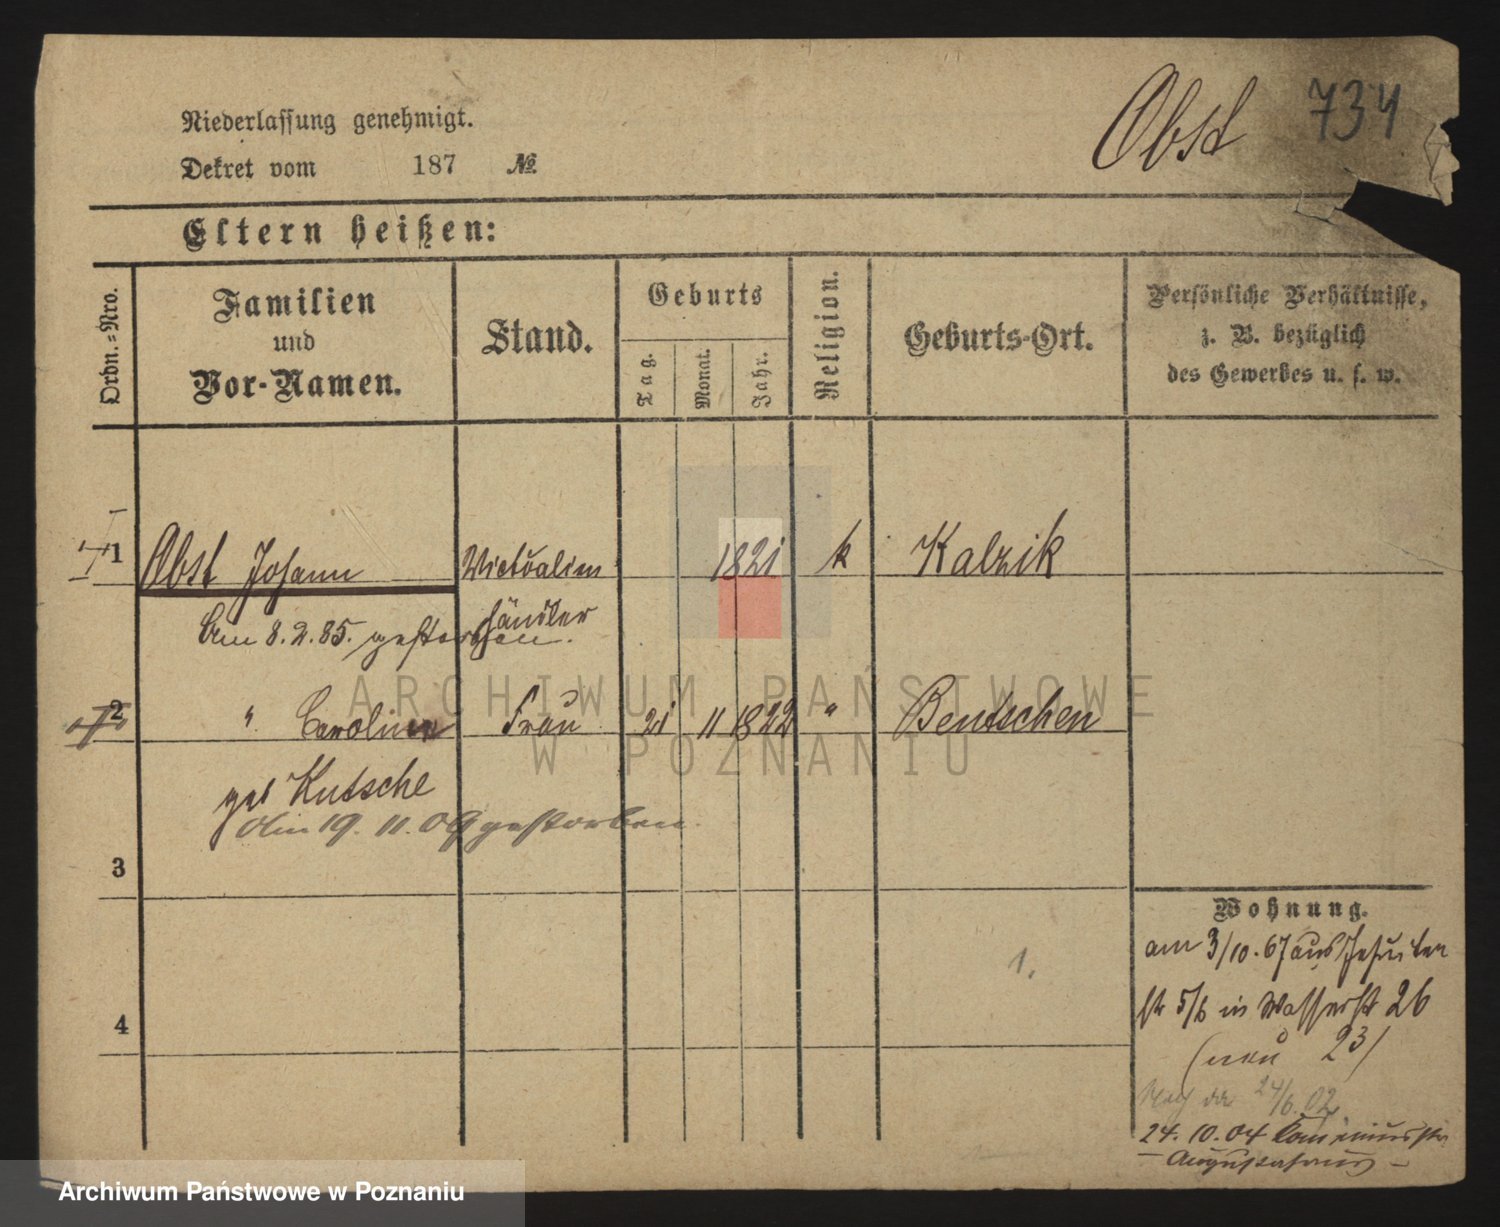 Obst 734
Niederlassung genehmigt.
Dekret vom 187 №
Eltern heißen:
Ordn.=Nro.
Familien
und
Vor-Namen.
Stand.
Geburts
Tag.
Monat.
Jahr.
Religion.
Geburts-Ort.
Persönliche Verhältnisse,
z. B. bezüglich
des Gewerbes u. s. w.
1 Obst Johann Victualien 1821 k Kalzik
händler
Am 8.2.85. gestorben.
2 " Caroline Frau 21 11 1822 " Bentschen
geb Kutsche
Am 19. 11. 09 gestorben.
3
4
1.
Wohnung.
am 3/10. 67 aus Jesuiten
str 5/6 in Wasserstr 26
(neu 23)
24/6. 02
24. 10. 04
Augustahaus
ARCHIWUM PAŃSTWOWE
W POZNANIU
Archiwum Państwowe w Poznaniu